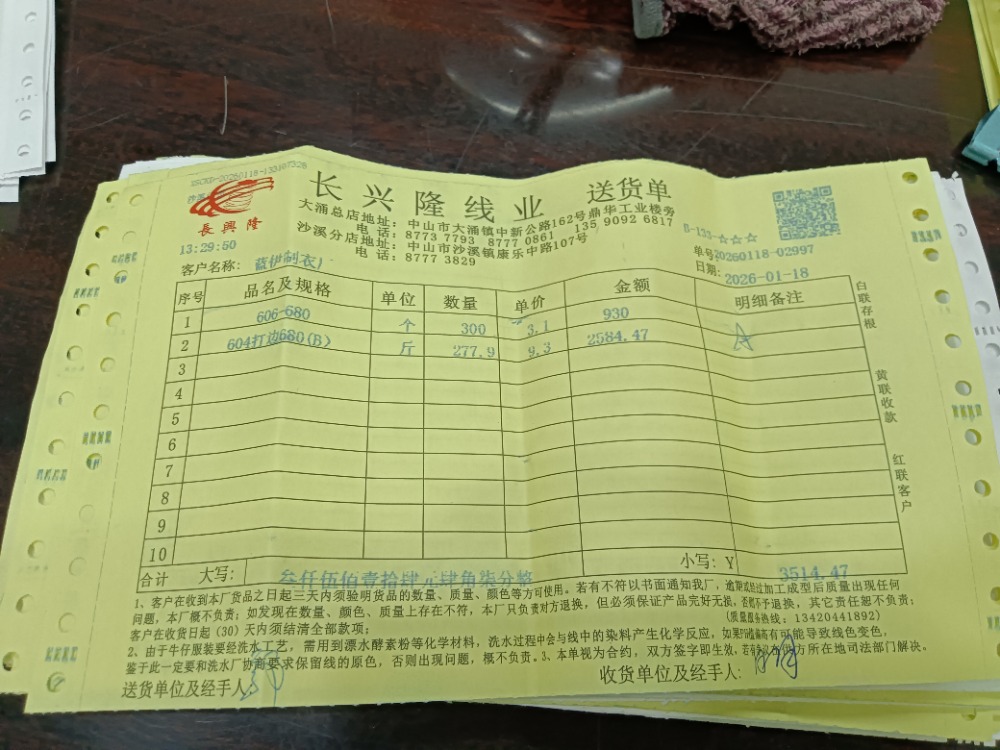 XSCKD-20260118-133107328
長興隆
长兴隆线业 送货单
大涌总店地址：中山市大涌镇中新公路162号鼎华工业楼旁
电话：8773 7793 8777 0861 135 9092 6817
沙溪分店地址：中山市沙溪镇康乐中路107号
电话：8777 3829
B-133-☆☆☆
13:29:50
单号20260118-02997
客户名称：蓝伊制衣厂
日期：2026-01-18
序号 品名及规格 单位 数量 单价 金额 明细备注
1 606-680 个 300 3.1 930
2 604打边680(B) 斤 277.9 9.3 2584.47
3
4
5
6
7
8
9
10
合计 大写：叁仟伍佰壹拾肆元肆角柒分整 小写：Y 3514.47
白联存根
黄联收款
红联客户
1、客户在收到本厂货品之日起三天内须验明货品的数量、质量、颜色等方可使用。若有不符以书面通知我厂，逾期或经过加工成型后质量出现任何
问题，本厂概不负责；如发现在数量、颜色、质量上存在不符，本厂只负责对方退换，但必须保证产品完好无损，否则不予退换，其它责任恕不负责；
客户在收货日起（30）天内须结清全部款项； （质量服务热线：13420441892）
2、由于牛仔服装要经洗水工艺，需用到漂水酵素粉等化学材料，洗水过程中会与线中的染料产生化学反应，如果有可能导致线色变，
鉴于此一定要和洗水厂协商要求保留线的原色，否则出现问题，概不负责。3、本单视为合约，双方签字即生效，方所在地司法部门解决。
送货单位及经手人： 收货单位及经手人：